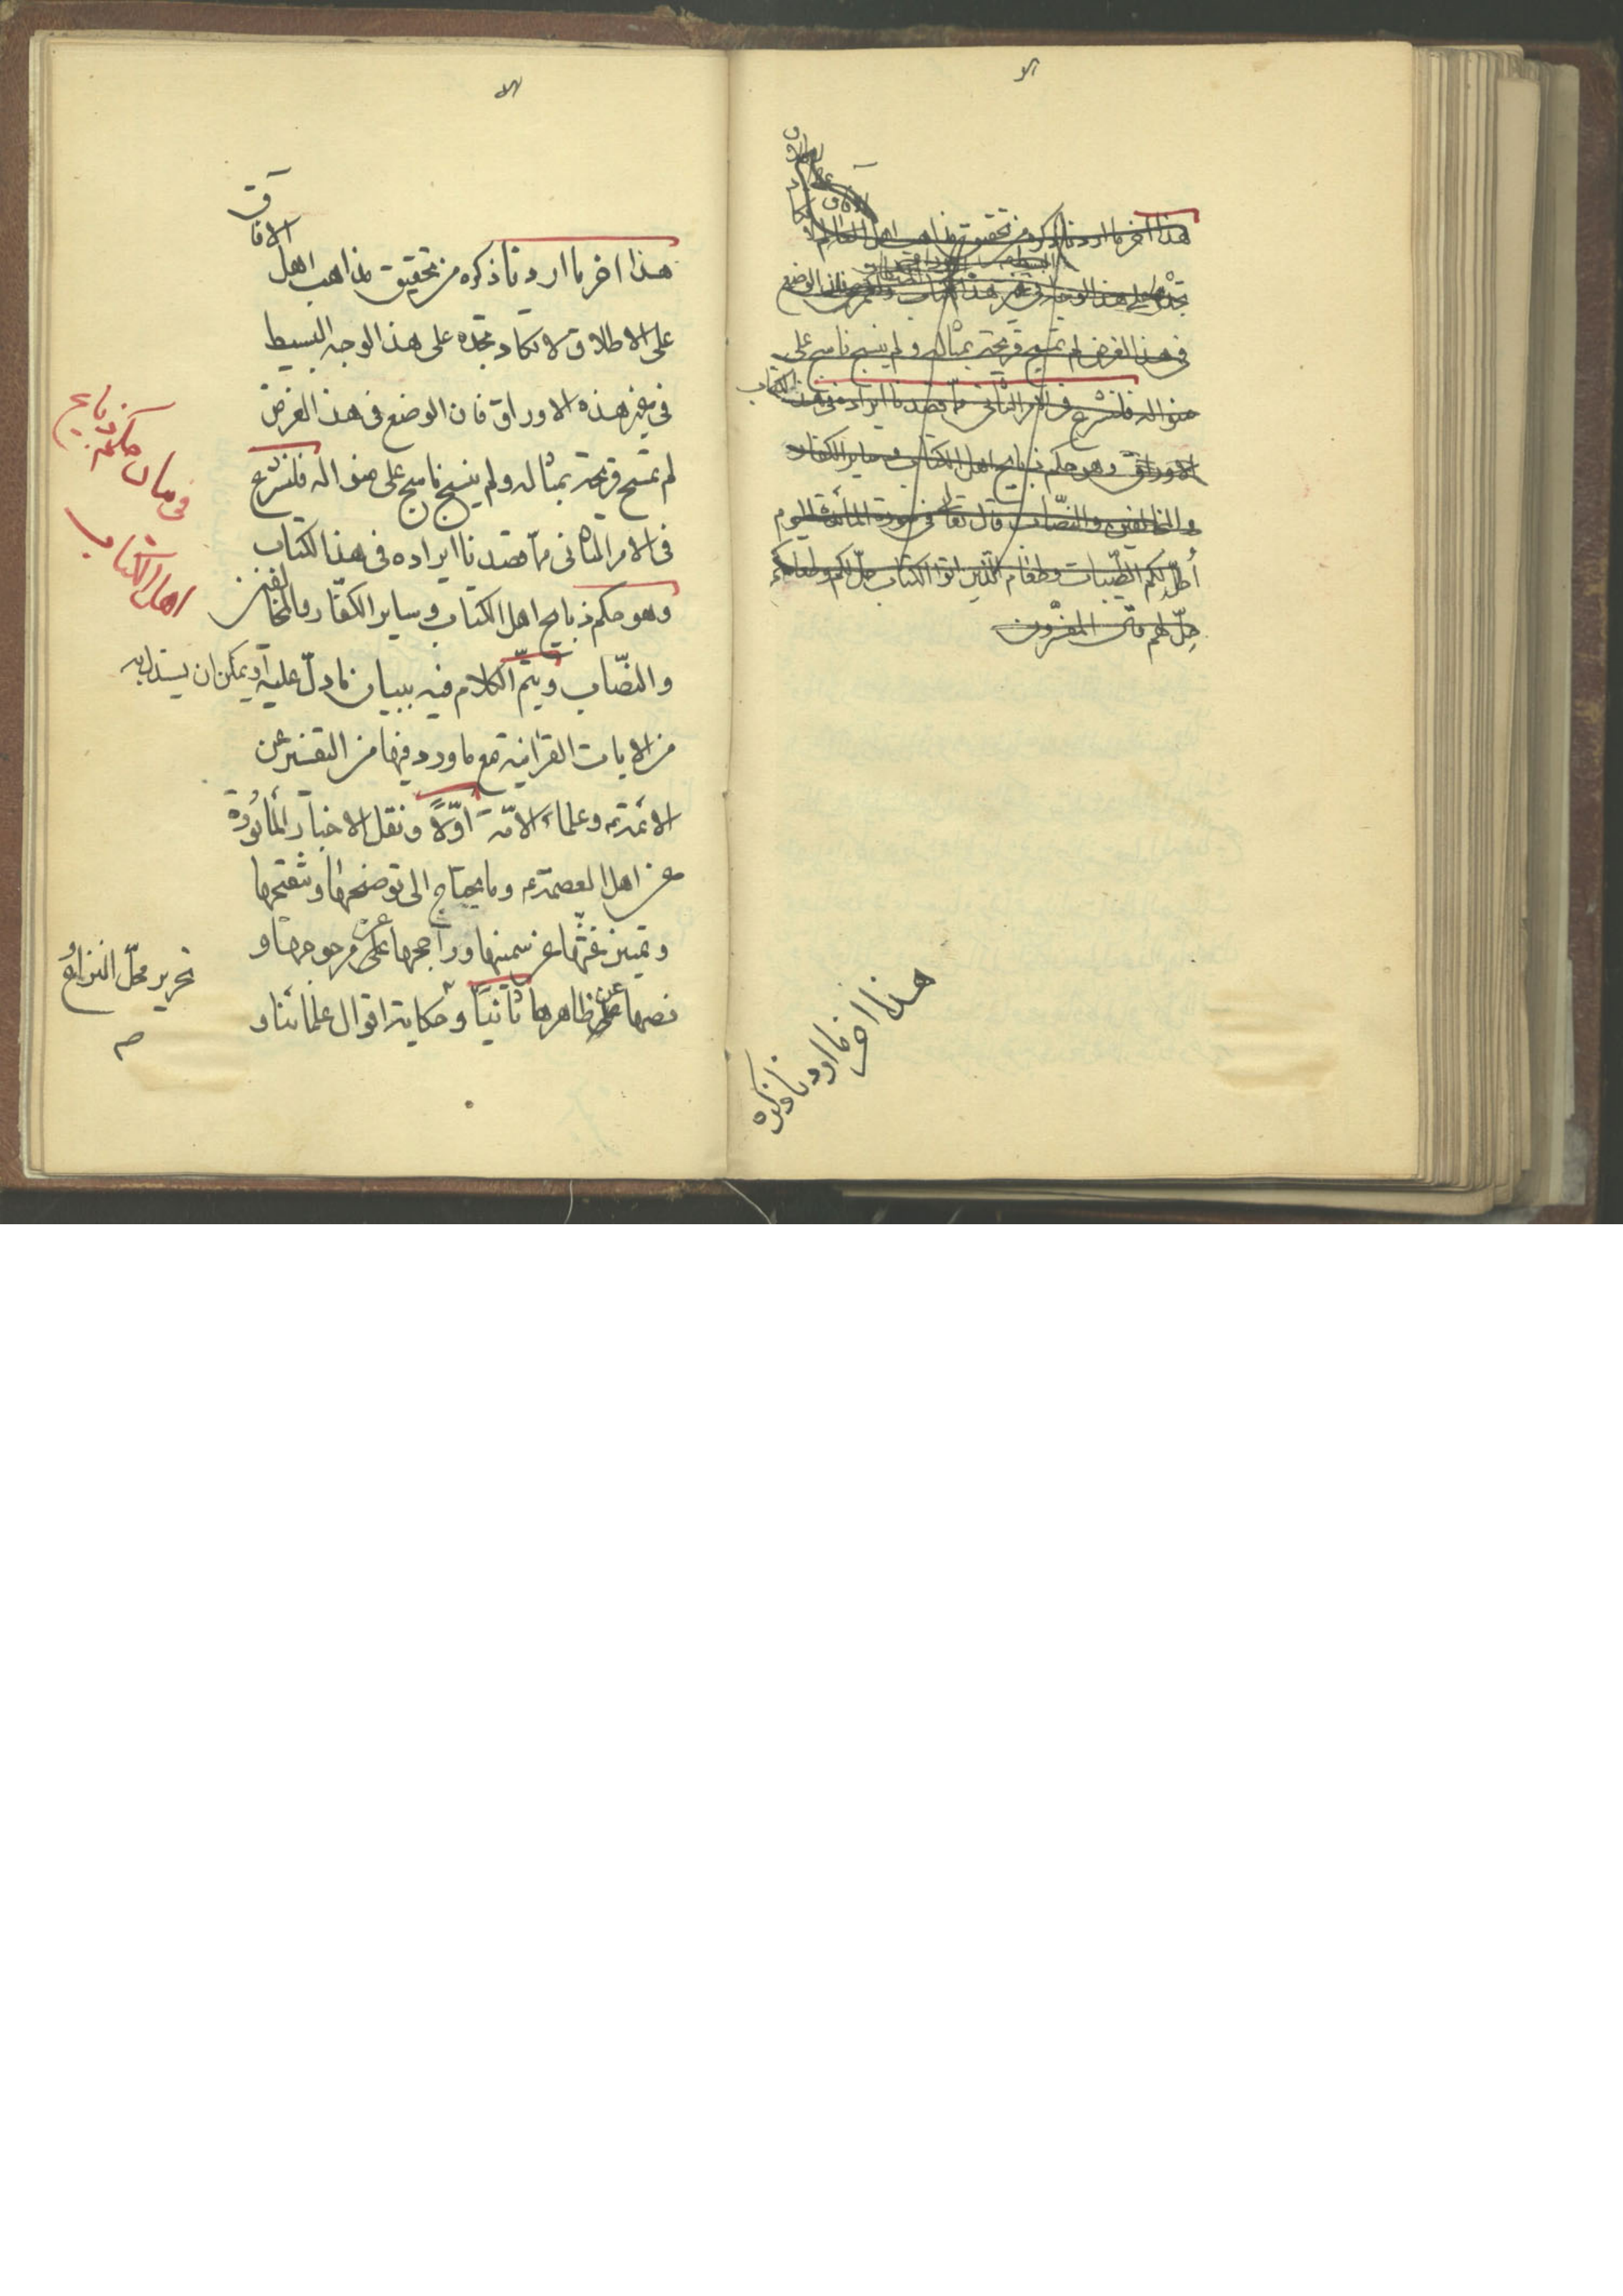 هذا اخر ما اردنا ذكره من تحقيق مذاهب اهل العالم لا
تجده على هذا الوجه فى غير هذا الكتاب فان الوضع
فى هذا الغرض لم تمسح قريحة بمثاله و لم ينسج ناسج على
منواله فلنشرع فى الامر الثانى ممّا قصدنا ايراده فى هذه الكتاب
الاوراق وهو حكم ذبايح اهل الكتاب و ساير الكفار
والمخالفين والنصّاب قال تعالى فى سورة المائدة اليوم
أحلّ لكم الطّيبات وطعام الّذين اوتوا الكتاب حلّ لكم وطعامكم
حِلّ لهم قال المفسّرون
هذا اخر ما اردنا ذكره
هذا اخر ما اردنا ذكره من تحقيق مذاهب اهل الآفاق
على الاطلاق لا تكاد تجده على هذا الوجه البسيط
فى غير هذه الاوراق فان الوضع فى هذا الغرض
لم تمسح قريحة بمثاله و لم ينسج ناسج على منواله فلنشرع
فى الامر الثانى ممّا قصدنا ايراده فى هذا الكتاب
وهو حكم ذبايح اهل الكتاب و ساير الكفّار والمخالفين
والنصّاب و يتمّ الكلام فيه ببيان ما دلّ عليه او يمكن ان يستدل به
من الايات القرآنية مع ما ورد فيها من التفسير عن
الائمة و علماء الامّة اوّلاً و نقل الاخبار المأثورة
عن اهل العصمة و ما يحتاج الى توضيحها و تنقيحها
و تميز غثّها عن سمينها و راجحها عن مرجوحها و
نصها عن ظاهرها ثانيا و حكاية اقوال علمائنا و
فى بيان حكم ذبايح
اهل الكتاب
تحرير محلّ النزاع و